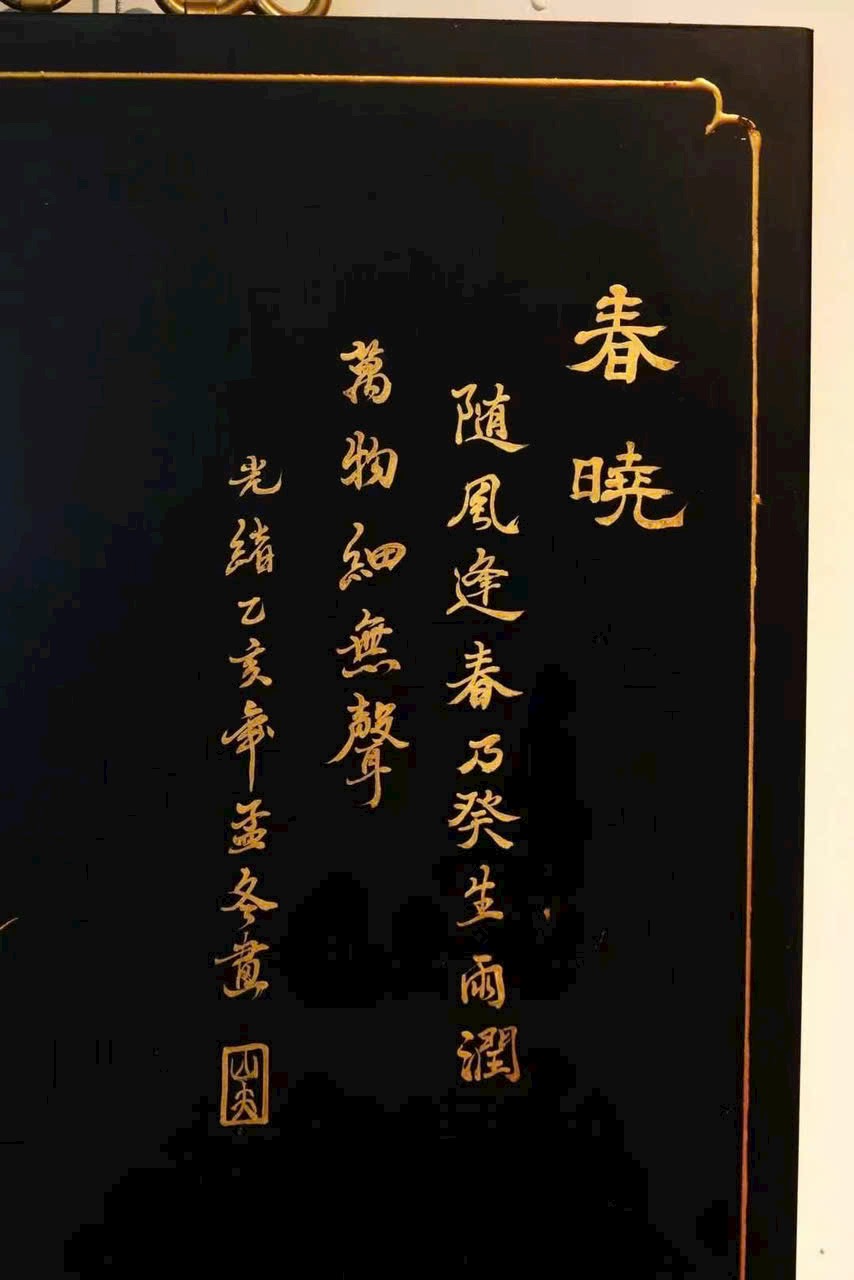 春曉
随風逢春乃癸生雨潤
萬物細無聲
光緒乙亥年孟冬畫